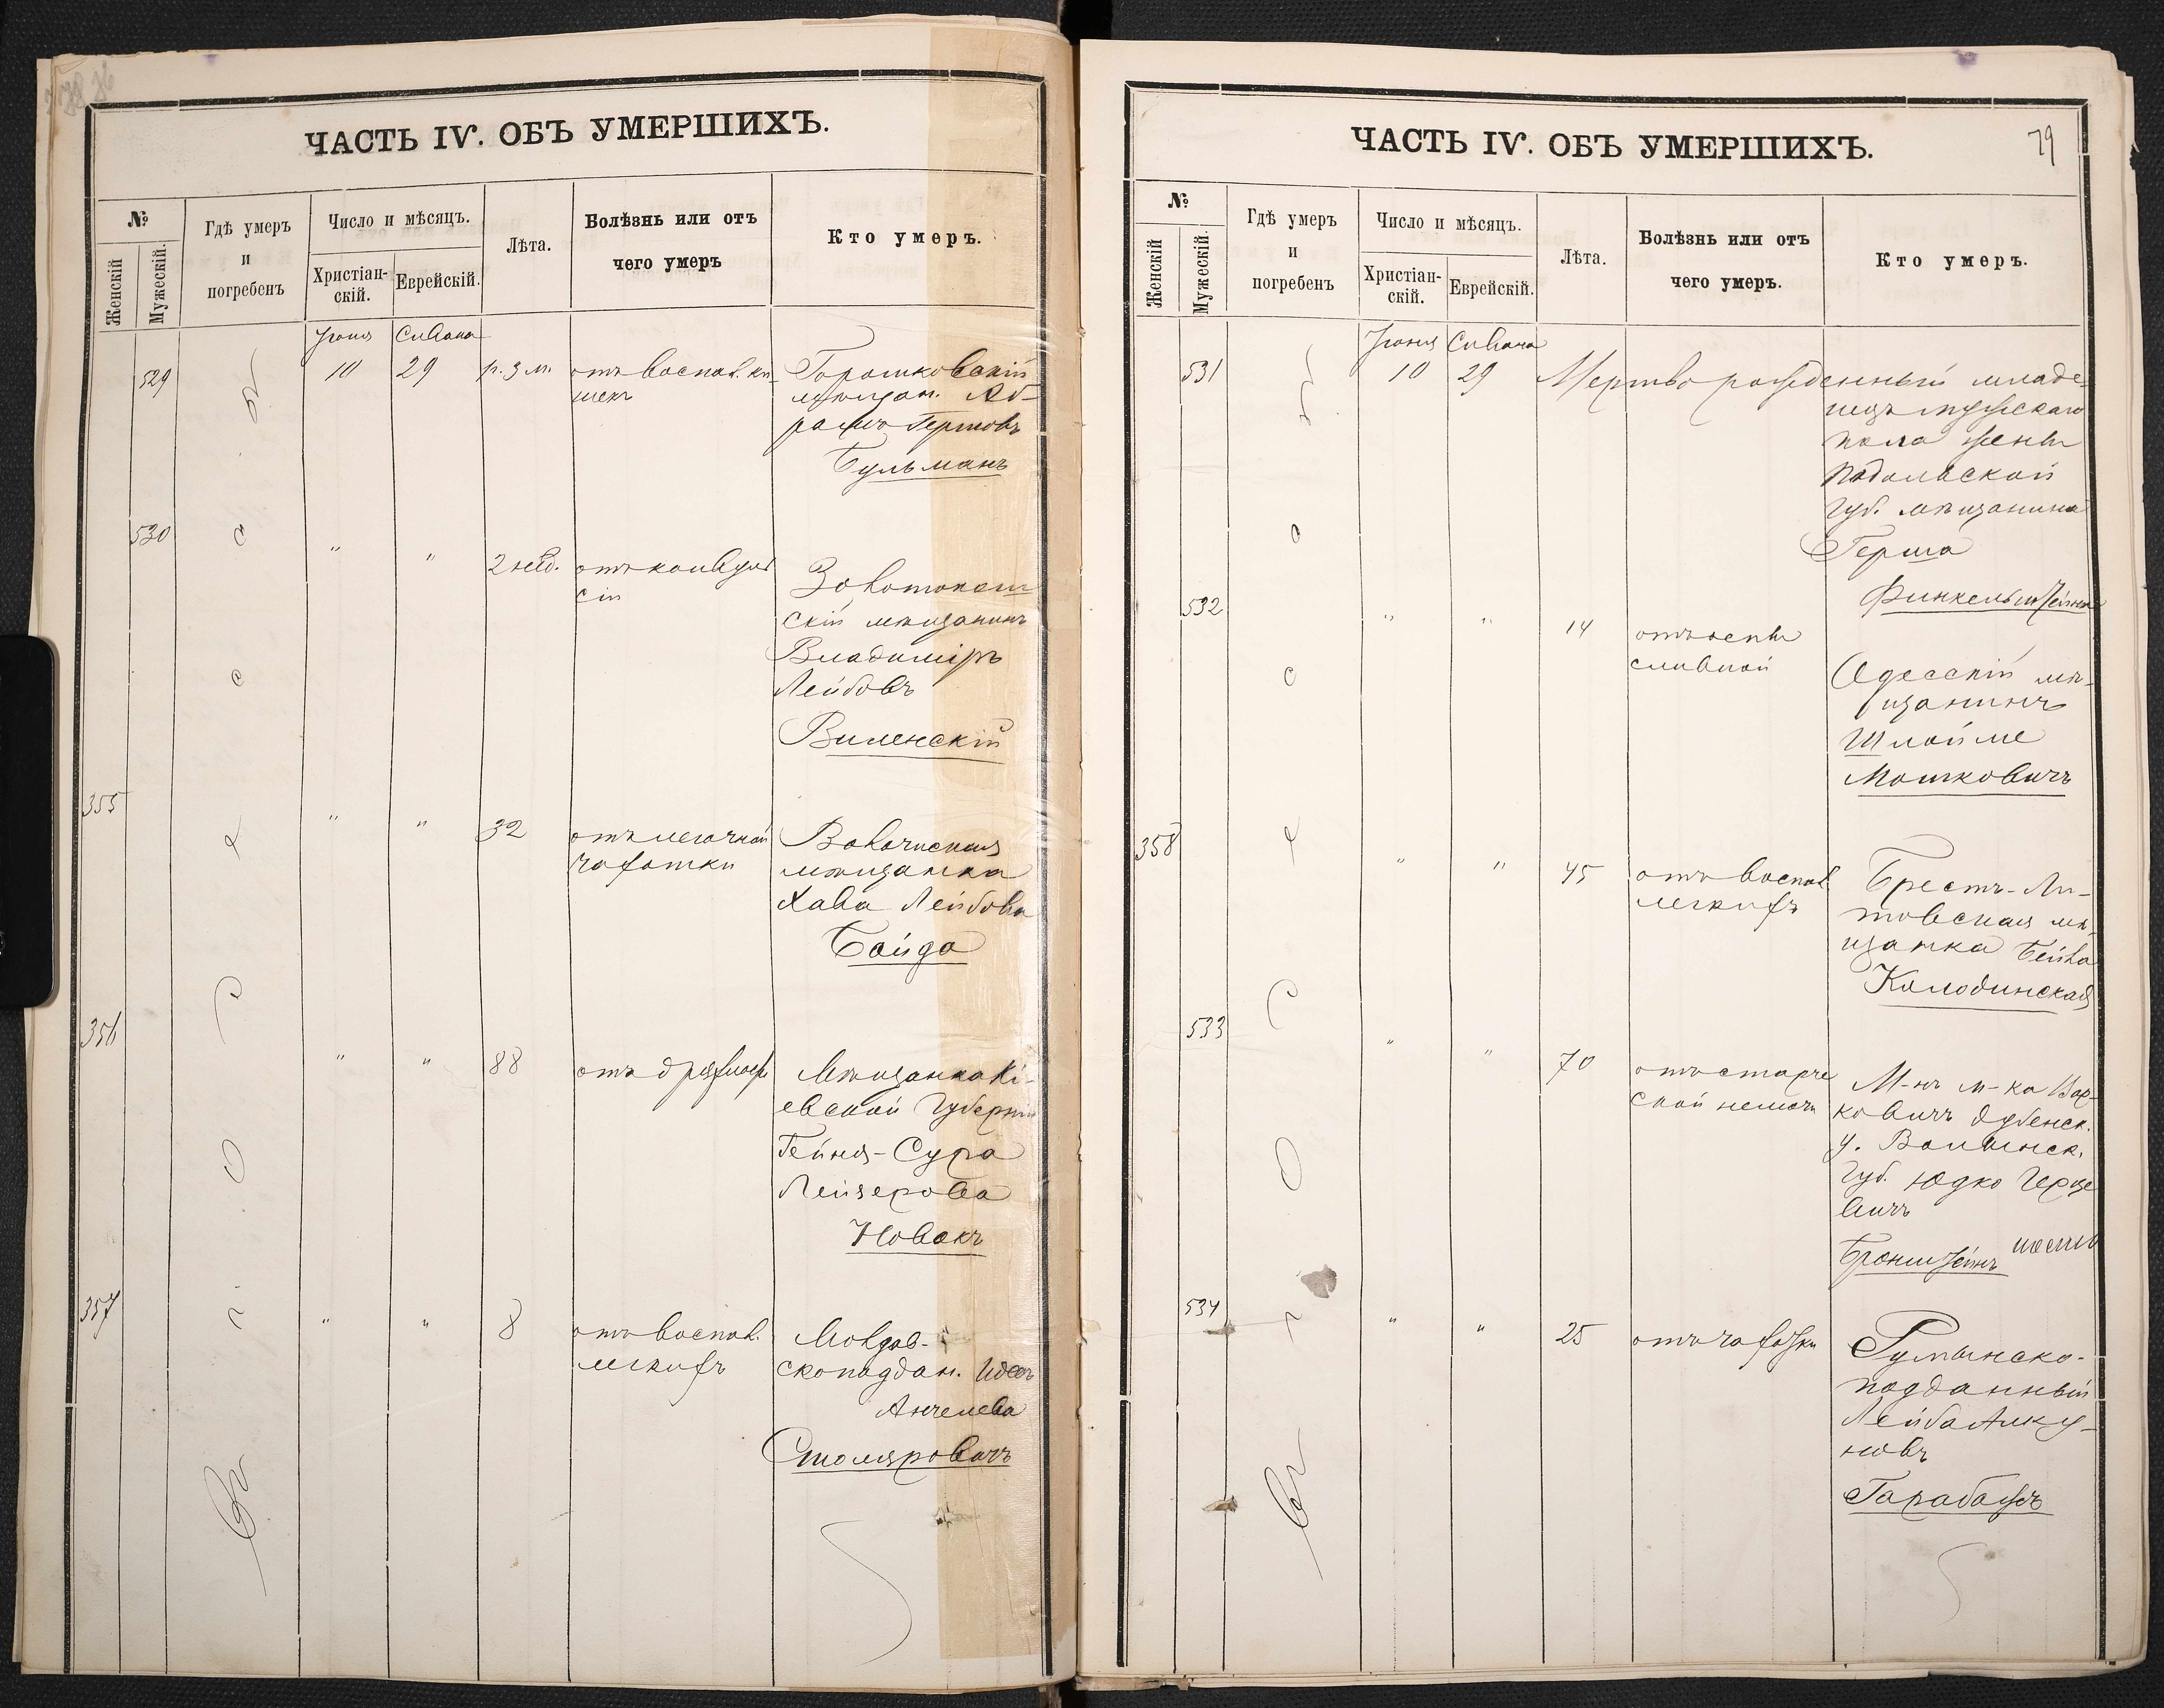 ЧАСТЬ IV. ОБЪ УМЕРШИХЪ.
№
Женскій
Мужескій.
Гдѣ умеръ
и
погребенъ
Число и мѣсяцъ.
Христіан-
скій.
Еврейскій.
Лѣта.
Болѣзнь или отъ
чего умеръ
Кто умеръ.
Іюня Сивана
529 10 29 1 г. 3 м. отъ воспал. ки-
шекъ
Горошковскій
мѣщан. Аб-
рамъ Гершовъ
Гульманъ
530 " " 2 нед. отъ конвуль
сій
Золотопош
скій мѣщанинъ
Владиміръ
Лейбовъ
Виленскій
355 " " 32 отъ легочной
чахотки
Волочиская
мѣщанка
Хава Лейбова
Бойда
356 " " 88 отъ дряхлости
Мѣщанка Кі-
евской Губерніи
Гейня-Сура
Лейзерова
Новакъ
357 " " 8 отъ воспал.
легкихъ
Молдав-
скоподдан. Идесъ
Анчелева
Столяровичъ
О д е с с а г о р о д ъ
ЧАСТЬ IV. ОБЪ УМЕРШИХЪ.
79
№
Женскій
Мужескій.
Гдѣ умеръ
и
погребенъ
Число и мѣсяцъ.
Христіан-
скій.
Еврейскій.
Лѣта.
Болѣзнь или отъ
чего умеръ.
Кто умеръ.
Іюня Сивана
531 10 29 Мертворожденный младе-
нецъ мужескаго
пола жены
Подольской
Губ. мѣщанина
Герша
Финкельштейна
532 " " 14 отъ оспы
сливной
Одесскій мѣ-
щанинъ
Шлойме
Мошковичъ
358 " " 45 отъ воспал.
легкихъ
Брестъ-Ли-
товская мѣ-
щанка Бейла
Колодинская
533 " " 70 отъ старче
ской немочи
М-нъ м-ка Вар-
ковичъ Дубенск.
у. Волынск.
Губ. Юдко Герше
вичъ
Бронштейнъ
534 " " 25 отъ чахотки
Румынско-
подданный
Лейба Анку-
новъ